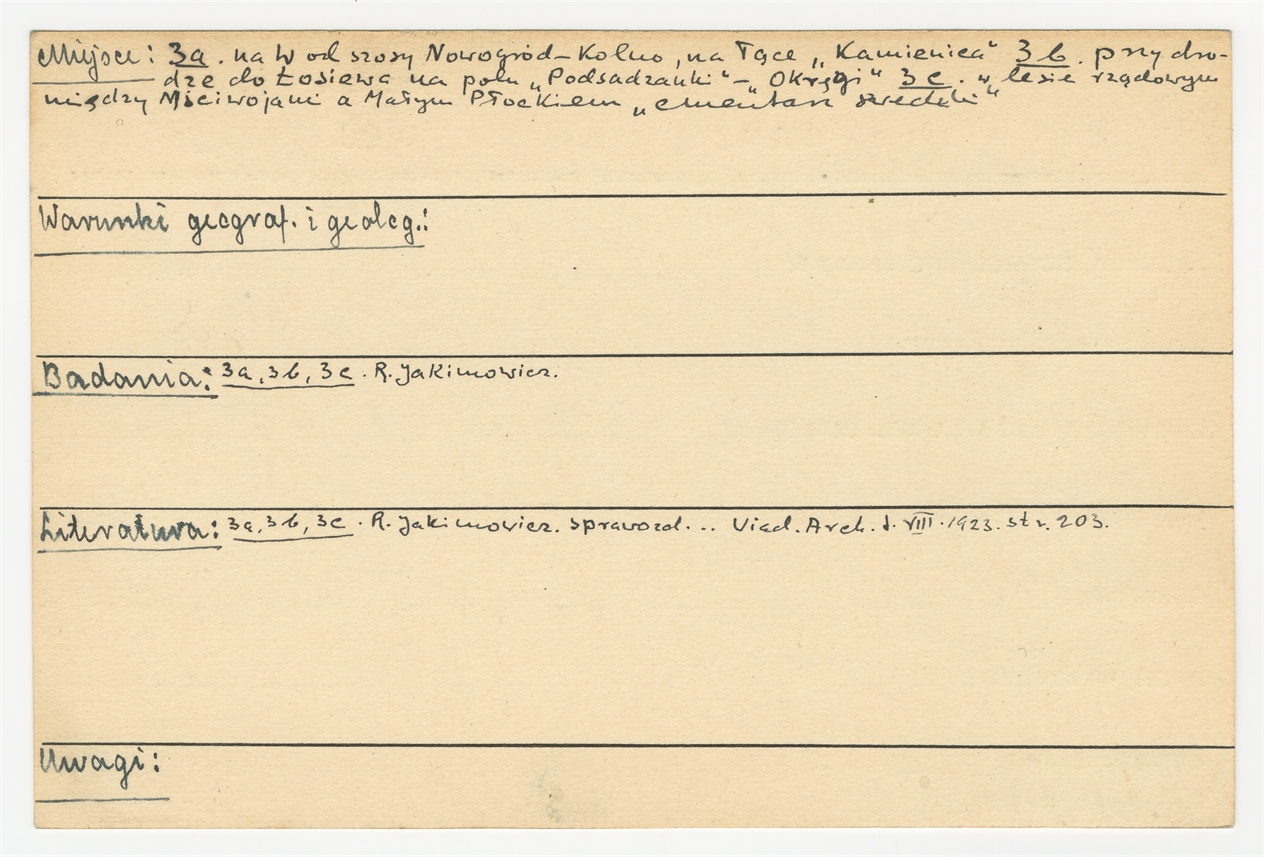 Miejsce: 3a. na W od szosy Nowogród-Kolno, na łące „Kamienica" 3b. przy dro-
dze do Łosiewa na polu „Podsadzanki"-„Okręgi" 3c. w lesie rządowym
między Mściwojami a Małym Płockiem „cmentarz szwedzki"
Warunki geograf. i geolog.:
Badania: 3a, 3b, 3c. R. Jakimowicz.
Literatura: 3a, 3b, 3c. R. Jakimowicz. Sprawozd... Wiad. Arch. t. VIII. 1923. str. 203.
Uwagi: